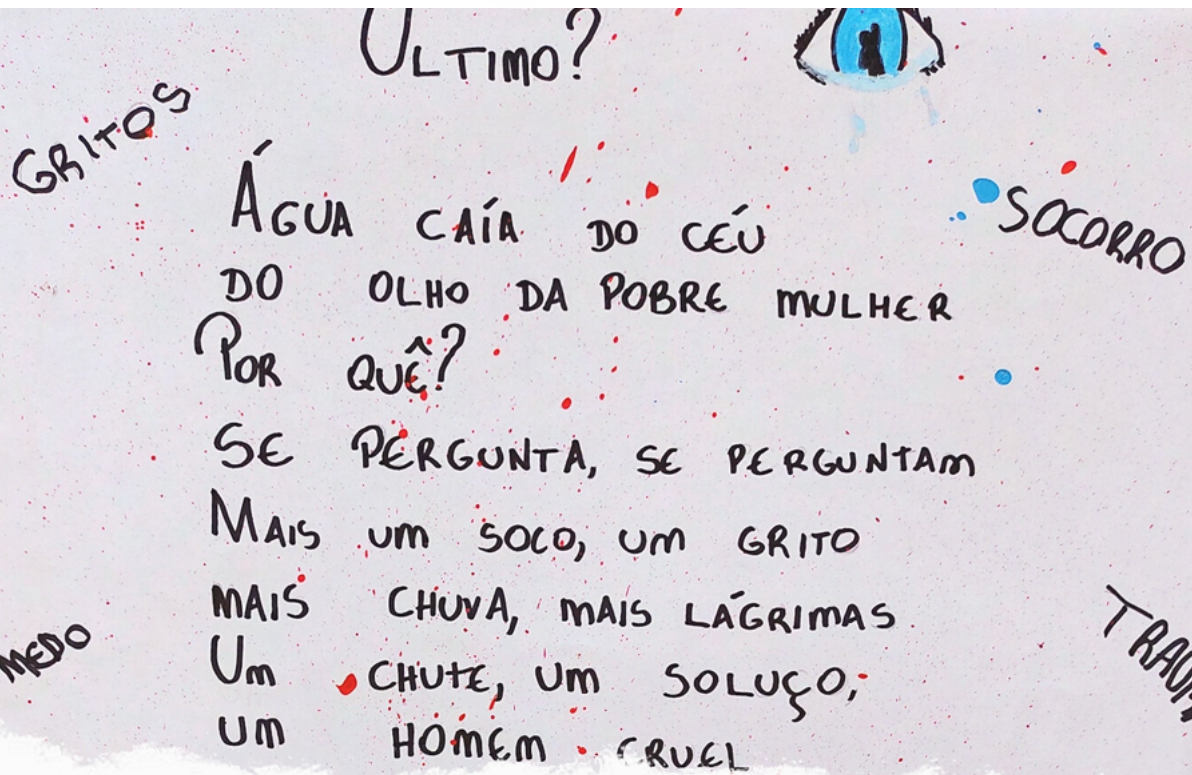 Último?
GRITOS
Água caía do céu
do olho da pobre mulher
Por quê?
Se pergunta, se perguntam
Mais um soco, um grito
mais chuva, mais lágrimas
Um chute, um soluço,
um homem cruel
SOCORRO
MEDO